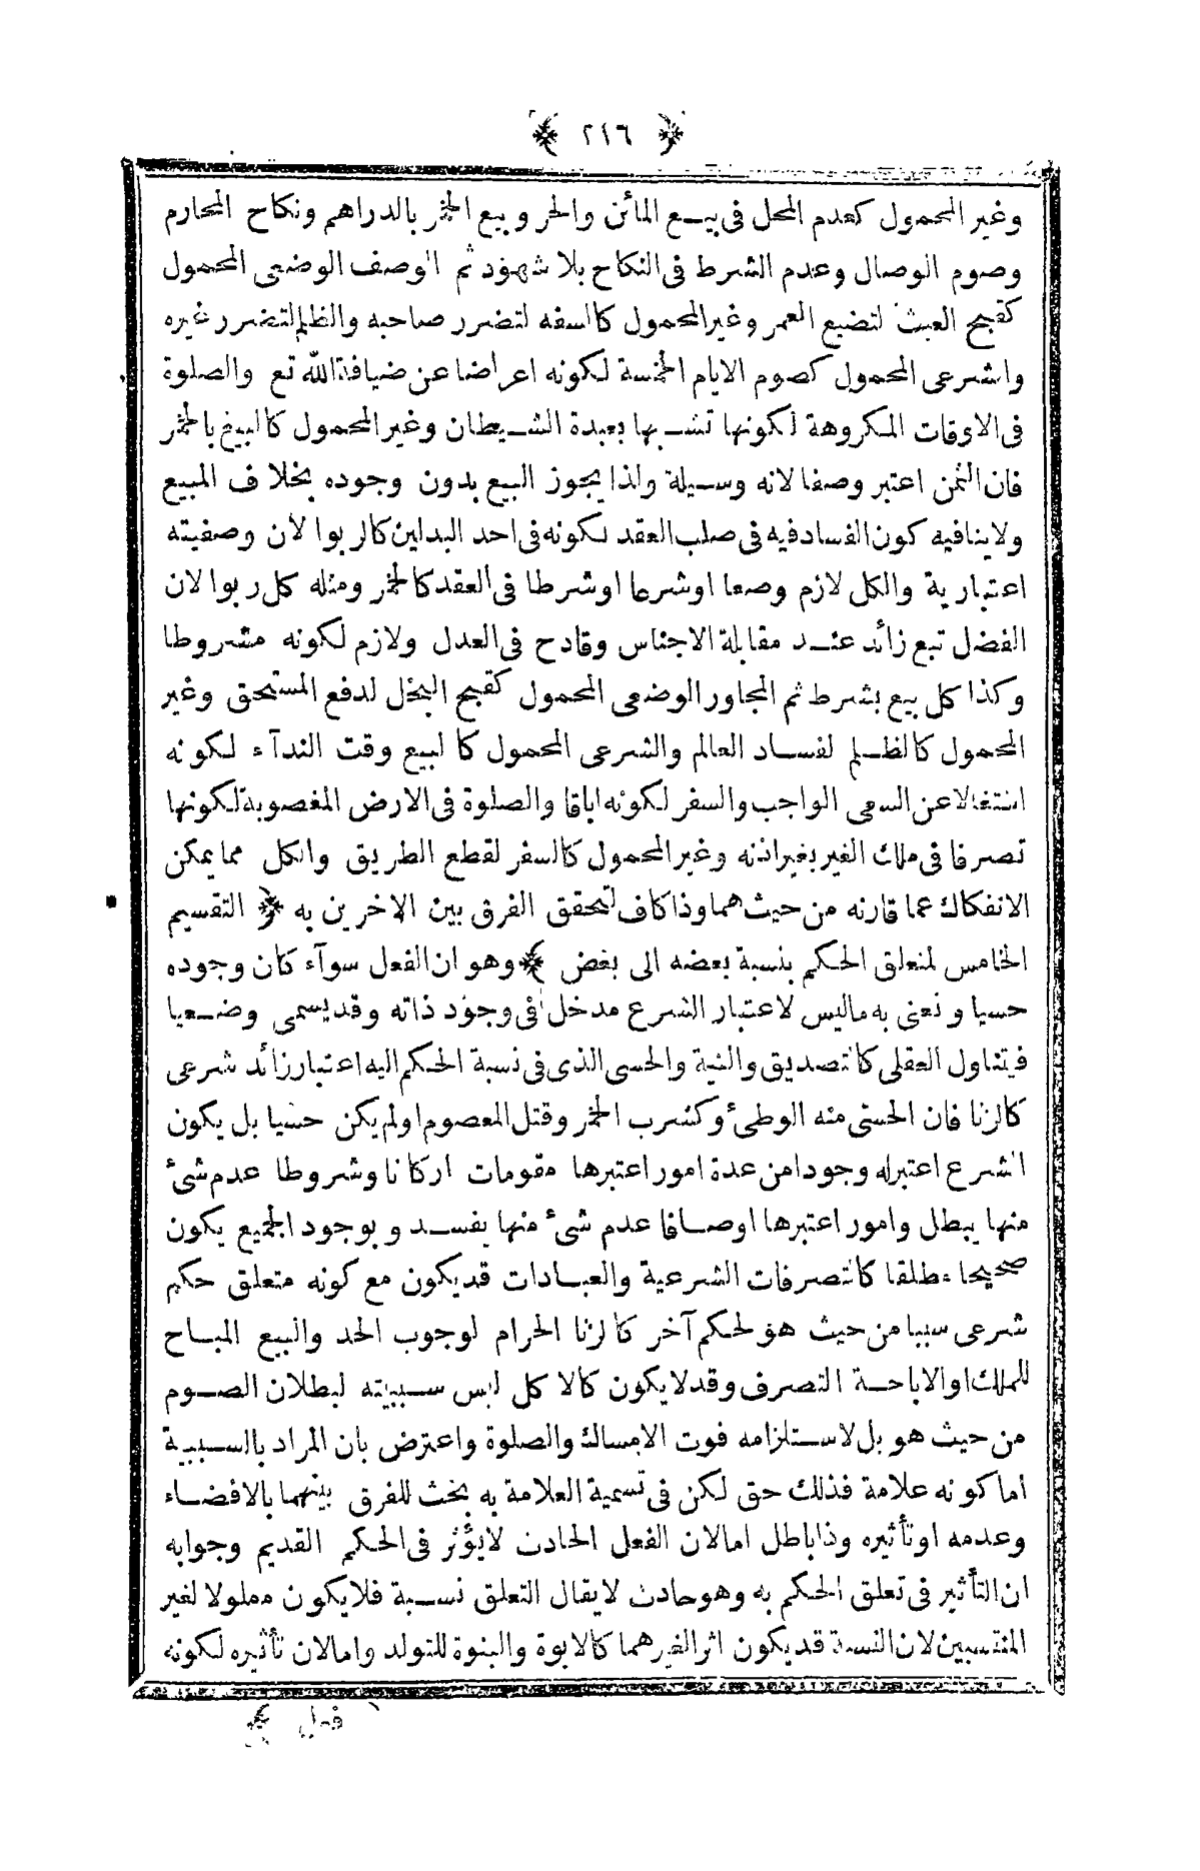 ﴿ ٢١٦ ﴾
وغير المحمول كعدم المحل فى بيع المائن والحر وبيع الخمر بالدراهم ونكاح المحارم
وصوم الوصال وعدم الشرط فى النكاح بلا شهود ثم الوصف الوضعى المحمول
كقبح العبث لتضيع العمر وغير المحمول كالسفه لتضرر صاحبه والظلم لتضرر غيره
والشرعى المحمول كصوم الايام الخمسة لكونه اعراضا عن ضيافة الله تع والصلوة
فى الاوقات المكروهة لكونها تشبها بعبدة الشيطان وغير المحمول كالبيع بالخمر
فان الثمن اعتبر وصفا لانه وسيلة ولذا يجوز البيع بدون وجوده بخلاف المبيع
ولا ينافيه كون الفساد فيه فى صلب العقد لكونه فى احد البدلين كالربوا لان وصفيته
اعتبارية والكل لازم وضعا اوشرعا اوشرطا فى العقد كالخمر ومثله كل ربوا لان
الفضل تبع زائد عند مقابلة الاجناس وقادح فى العدل ولازم لكونه مشروطا
وكذا كل بيع بشرط ثم المجاور الوضعى المحمول كقبح البخل لدفع المستحق وغير
المحمول كالظلم لفساد العالم والشرعى المحمول كالبيع وقت الندآء لكونه
اشتغالا عن السعى الواجب والسفر لكونه اباقا والصلوة فى الارض المغصوبة لكونها
تصرفا فى ملك الغير بغير اذنه وغير المحمول كالسفر لقطع الطريق والكل مما يمكن
الانفكاك عما قارنه من حيث هما وذا كاف لتحقق الفرق بين الاخرين به ﴿ التقسيم
الخامس لمتعلق الحكم بنسبة بعضه الى بعض ﴾ وهو ان الفعل سوآء كان وجوده
حسيا ونعنى به ماليس لاعتبار الشرع مدخل فى وجود ذاته وقد يسمى وضعيا
فيتناول العقلى كالتصديق والنية والحسى الذى فى نسبة الحكم اليه اعتبار زائد شرعى
كالزنا فان الحسى منه الوطئ وكشرب الخمر وقتل المعصوم اولم يكن حسيا بل يكون
الشرع اعتبر له وجودا من عدة امور اعتبرها مقومات اركانا وشروطا عدم شئ
منها يبطل وامور اعتبرها اوصافا عدم شئ منها يفسد وبوجود الجميع يكون
صحيحا مطلقا كالتصرفات الشرعية والعبادات قد يكون مع كونه متعلق حكم
شرعى سببا من حيث هو لحكم آخر كالزنا الحرام لوجوب الحد والبيع المباح
للملك او الاباحة التصرف وقد لا يكون كالاكل ليس سببيته لبطلان الصوم
من حيث هو بل لاستلزامه فوت الامساك والصلوة واعترض بان المراد بالسببية
اما كونه علامة فذلك حق لكن فى تسمية العلامة به بحث للفرق بينهما بالافضاء
وعدمه او تأثيره وذا باطل اما لان الفعل الحادث لا يؤثر فى الحكم القديم وجوابه
ان التأثير فى تعلق الحكم به وهو حادث لا يقال التعلق نسبة فلا يكون معلولا لغير
المنتسبين لان النسبة قد يكون اثرا لغيرهما كالابوة والبنوة للتولد واما لان تأثيره لكونه